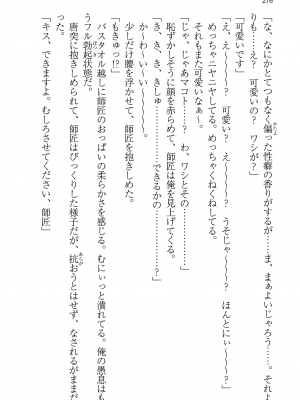 276
「な、なにかとてつもなく偏った性癖の香りがするが……ま、まぁよいじゃろう……。それよ
りも……え？ 可愛いの？ ワシが？」
「可愛いです」
「え、え〜〜〜？ 可愛い？ え〜〜〜？ うそじゃ〜〜〜？ ほんとにぃ〜〜〜？」
めっちゃニヤニヤしてる。めっちゃくねくねしてる。
それもまた可愛いなぁ〜。
「じゃ、じゃあマコト……？ わ、ワシとその……」
恥ずかしそうに顔を赤らめて、師匠は俺を見上げてくる。
「き、き、き、きしゅ……………できるかの…………？」
か〜わい〜い〜〜〜〜！
少しだけ腰を浮かせて、師匠を抱きしめた。
「もきゅっ！？」
バスタオル越しに師匠のおっぱいの柔らかさを感じる。むにぃっと潰れてる。俺の愚息はも
うフル勃起状態だ。
唐突に抱きしめられて、師匠はびっくりした様子だが、抗おうとはせず、なされるがままだ
った。
「キス、できますよ。むしろさせてください、師匠」